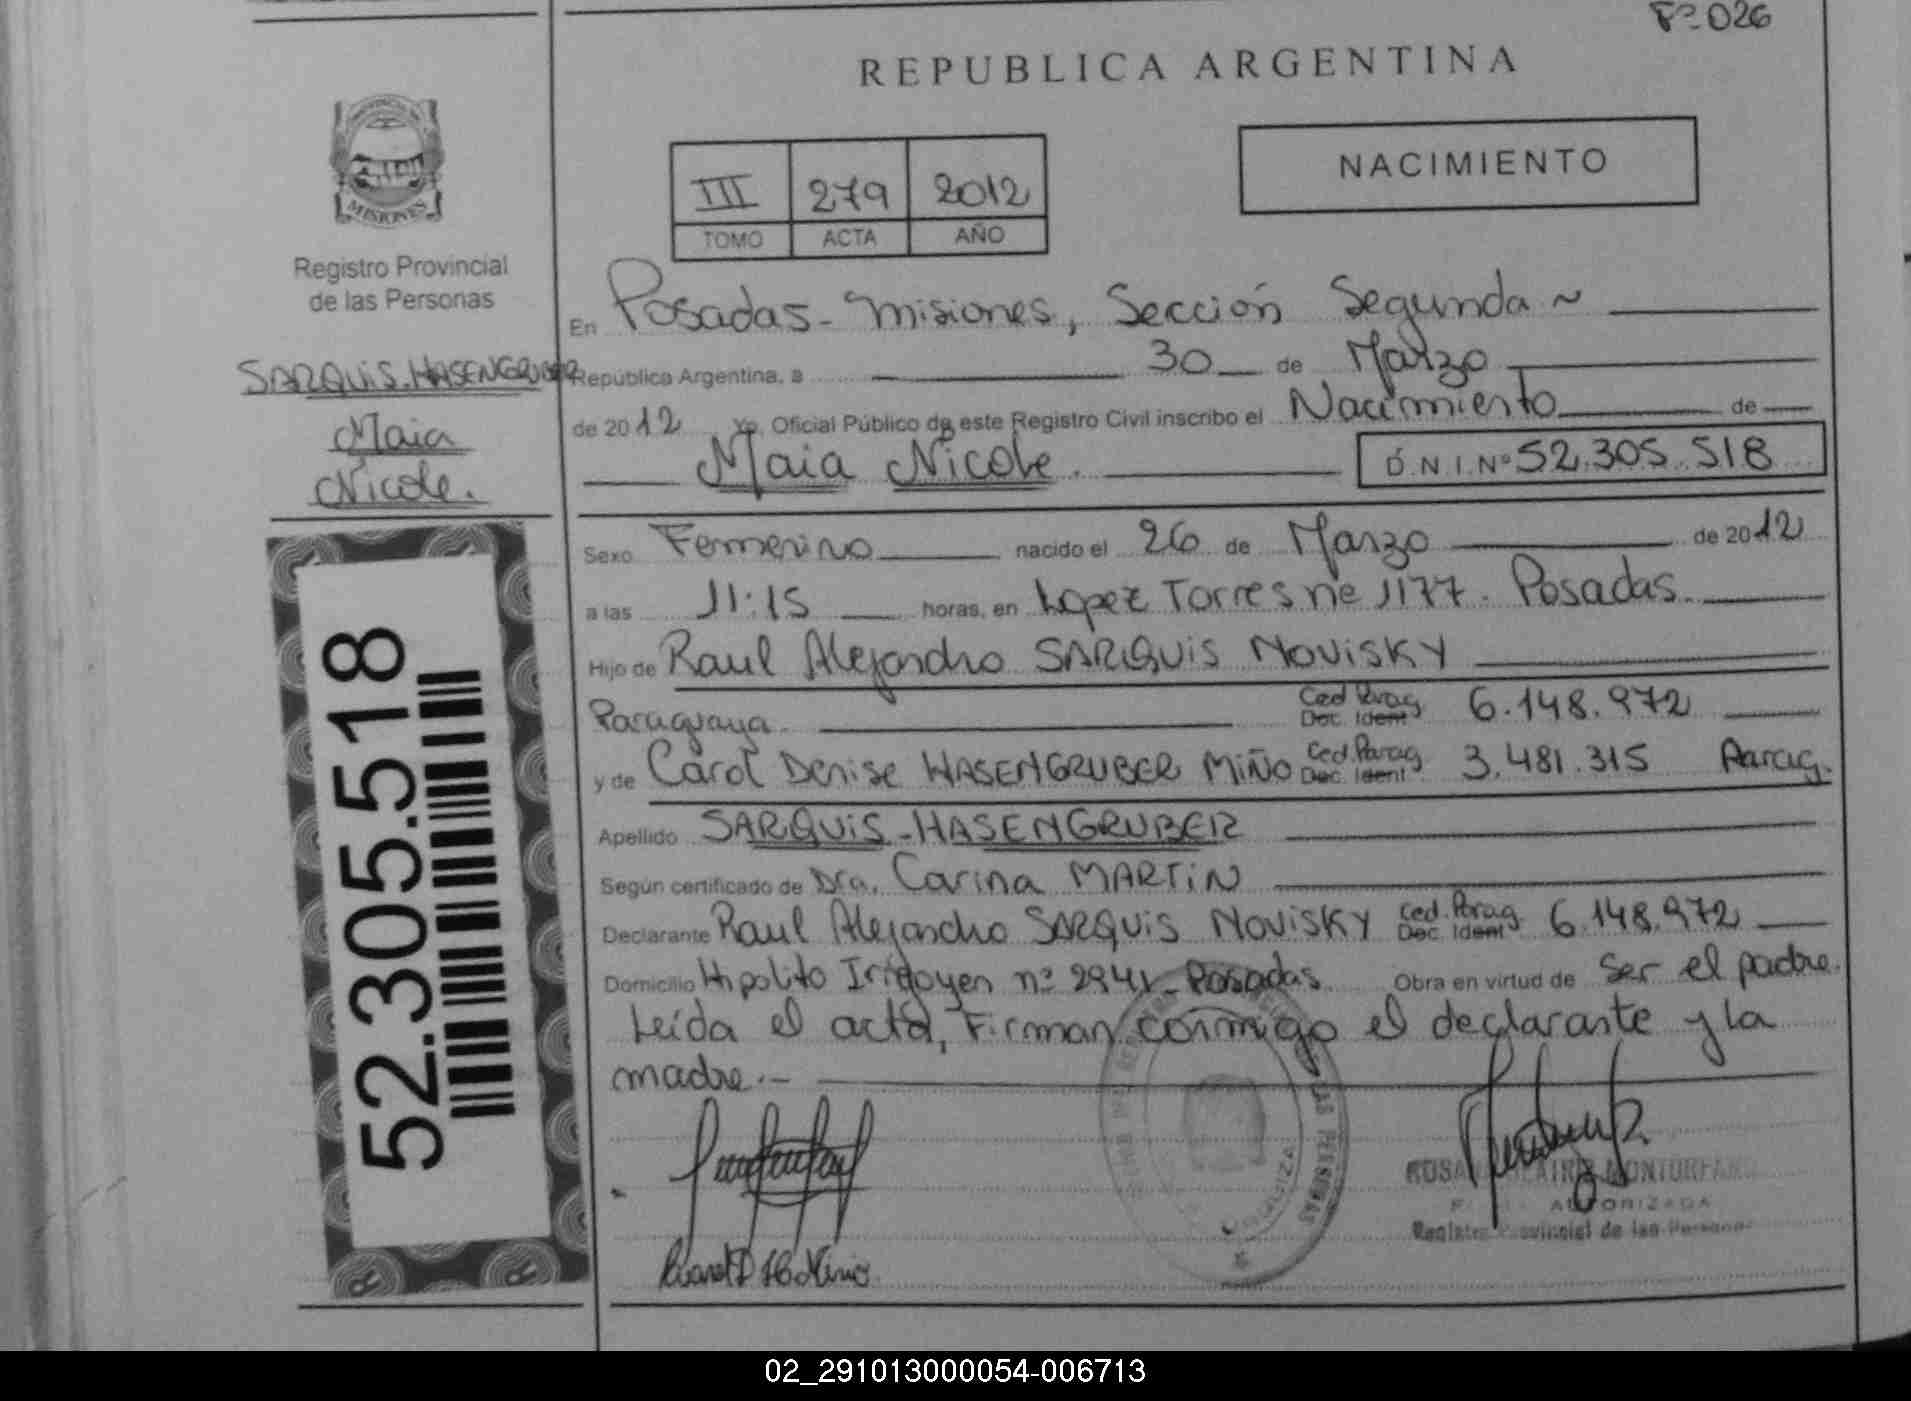 Fº 026
REPUBLICA ARGENTINA
NACIMIENTO
III 279 2012
TOMO ACTA AÑO
MISIONES
Registro Provincial
de las Personas
SARQUIS-HASENGRUBER
Maia
Nicole.
52.305.518
En Posadas - Misiones, Sección Segunda ~
República Argentina, a 30 de Marzo
de 2012 Yo, Oficial Público de este Registro Civil inscribo el Nacimiento de
Maia Nicole. D.N.I.Nº 52.305.518
Sexo Femenino nacido el 26 de Marzo de 2012
a las 11:15 horas, en Lopez Torres nº 1177. Posadas.
Hijo de Raul Alejandro SARQUIS NOVISKY
Ced Parag
Paraguaya. Doc. Ident 6.148.972
Ced.Parag
y de Carol Denise HASENGRUBER MIÑO Doc. Ident 3.481.315 Parag.
Apellido SARQUIS-HASENGRUBER
Según certificado de Dra. Carina MARTIN
Ced.Parag.
Declarante Raul Alejandro SARQUIS NOVISKY Doc. Ident 6.148.972
Domicilio Hipolito Irigoyen nº 2941 - Posadas Obra en virtud de Ser el padre.
Leída el acta, Firman conmigo el declarante y la
madre.-
MONTORFANO
AUTORIZADA
Registro Provincial de las Personas
02_291013000054-006713